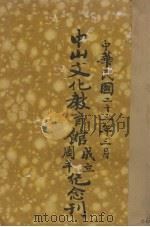 中華民國二十三年三月
中山文化教育館成立
周年紀念刊